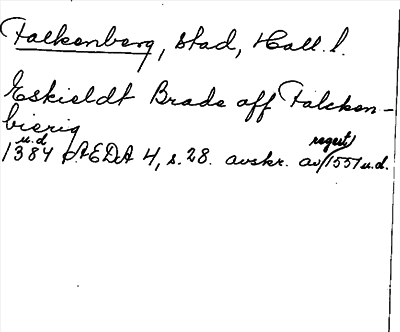 Falkenberg, stad, Hall. l.
Eskieldt Brade aff Falcken-
bierig
u.d
1384 ÆDA 4, s. 28. avskr. av regest 1551 u.d.